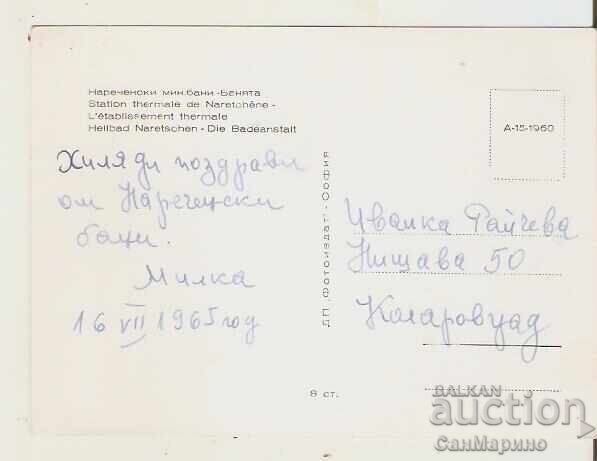 Нареченски мин.бани - Банята
Station thermale de Naretchène -
L'établissement thermale
Heilbad Naretschen - Die Badeanstalt
А-15-1960
Хиляди поздрави
от Нареченски
бани.
Милка
16 VII 1965 год
ДП „Фотоиздат" - София
Иванка Райчева
Нишава 50
Коларовград
8 ст.
BALKAN
auction
СанМарино